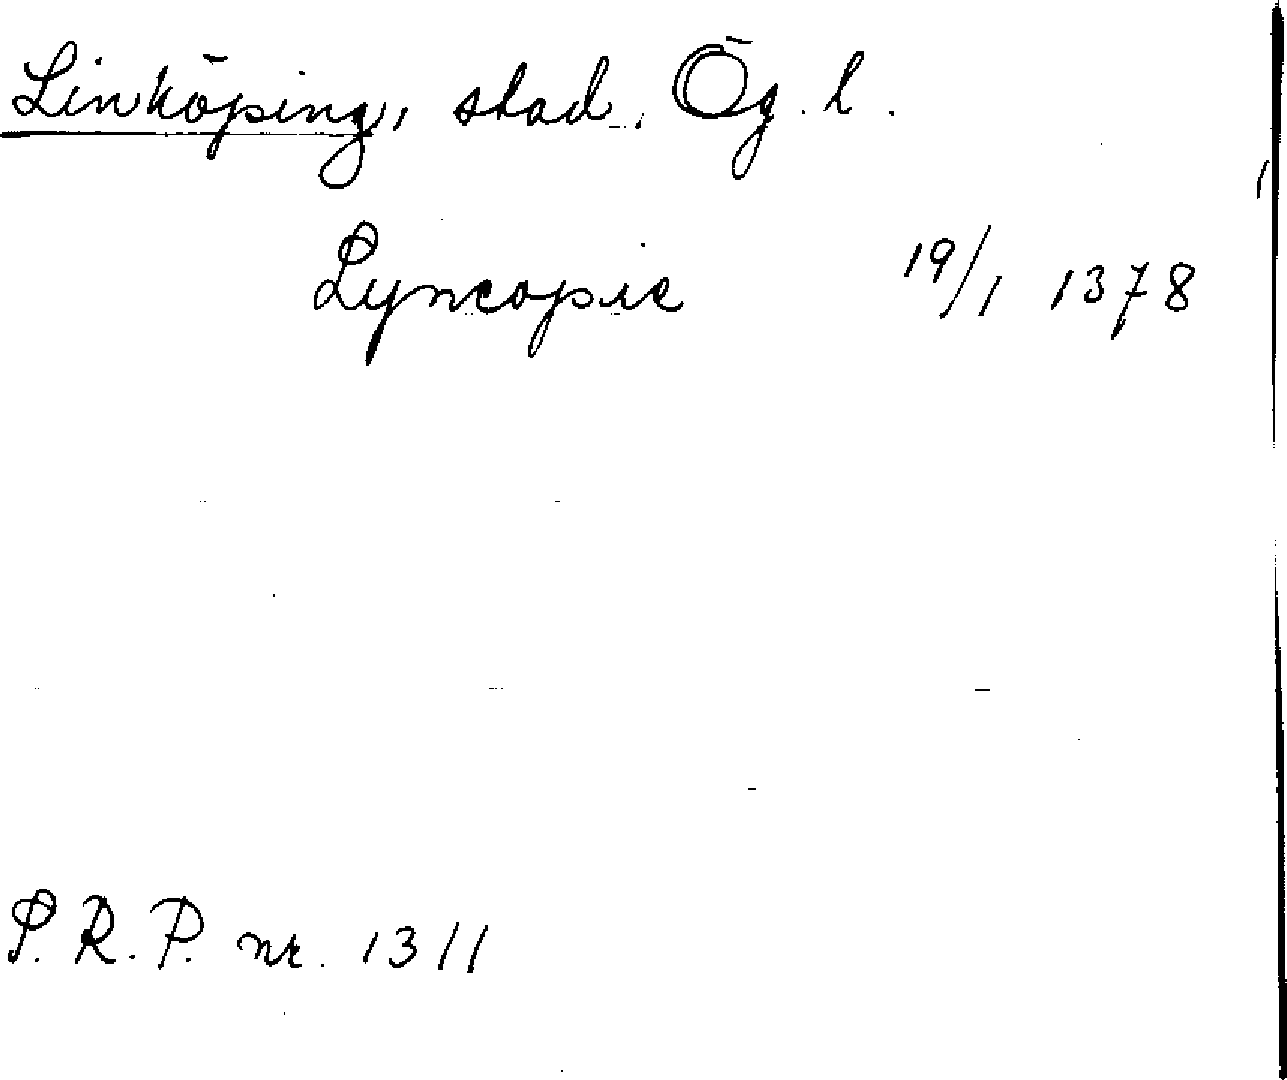 Linköping, stad. Ög. l.
Lyncopie 19/1 1378
P. R. P. nr. 1311